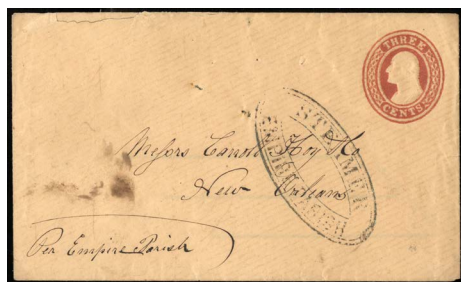 THREE
CENTS
STEAMER
EMPIRE PARISH
Messrs
New Orleans
Per Empire Parish